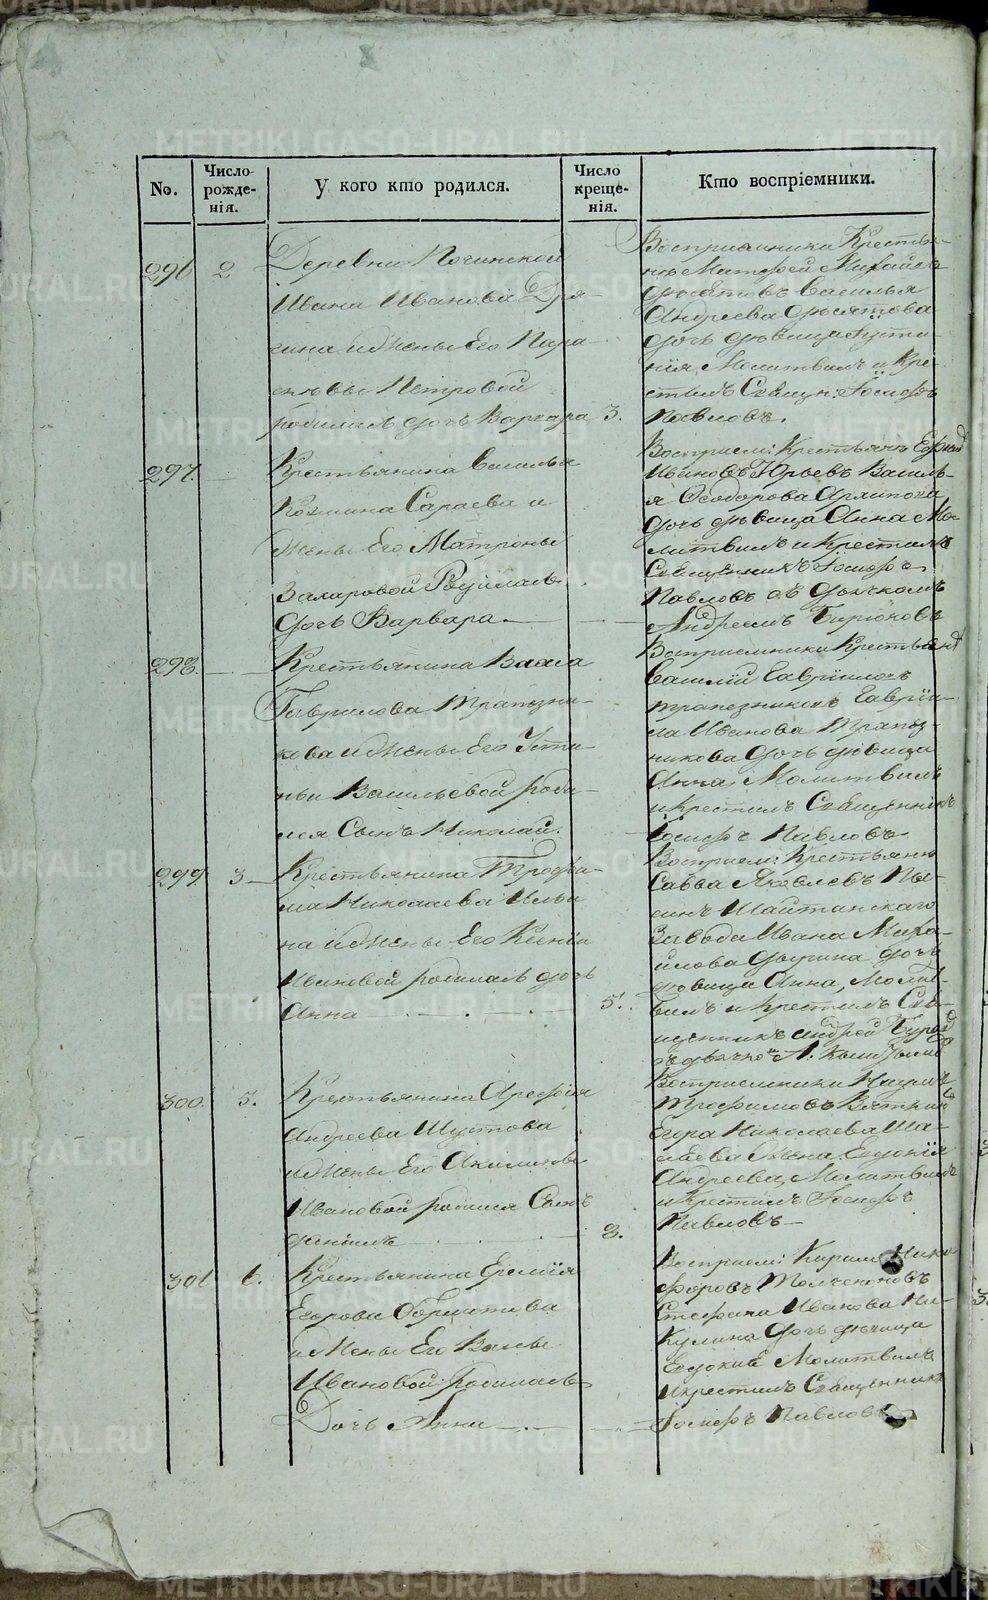 No.
Число рожденія.
У кого кто родился.
Число крещенія.
Кто воспріемники.
296
2.
Деревни Починской
Ивана Иванова Дря-
гина и Жены Его Пара-
скевы Петровой
родилась дочь Варвара
3.
Восприемники Крестья-
Матфей Михайло
Василья
Андреева
дочь девица Усти-
нія, Молитвилъ и Кре-
стилъ Священ: Іосифъ
Павловъ.
297.
Крестьянина Василья
Козмина Сараева и
Жены Его Матроны
Захаровой Родилась
дочь Варвара
Восприем: Крестьянъ
Ивановъ Юрьевъ Василь-
я Феодорова Архипова
дочь девица Анна Мо-
литвилъ и Крестилъ
Священникъ Іосифъ
Павловъ съ дьячкомъ
Андреемъ Бирюковъ
298.
Крестьянина
Гаврилова Трапезни-
кова и Жены Его Усти-
ньи Васильевой роди-
лся Сынъ Николай.
Восприемники Крестьян
Василій Гавріиловъ
трапезниковъ Гаврі-
ла Иванова Трапез-
никова дочь девица
Анна, Молитвилъ
и крестилъ Священникъ
Іосифъ Павловъ
299
3
Крестьянина Трофи-
ма Николаева Ильи
на и Жены Его Ксеніи
Ивановой родилась дочь
Анна
5.
Восприем: Крестьянъ
Савва Яковлевъ
Шайтанскаго
Завода Ивана Миха-
йлова дочь
девица Анна, Молит-
вилъ и Крестилъ Свя-
щенникъ Андрей
300.
5.
Крестьянина Арефія
Андреева Шустова
и Жены Его Акилины
Ивановой родился Сынъ
Даніилъ
8.
Восприемники Наумъ
Трофимовъ Вяткин
Егора Николаева
Жена Евдокія
Андреева, Молитвилъ
и Крестилъ Іосифъ
Павловъ
301
6.
Крестьянина Еремія
Егорова
и Жены Его
Ивановой родилась
Дочь Анна
Восприем: Кирилъ Ники
форовъ
Стефана Иванова Ни-
кулина дочь девица
Евдокия Молитвилъ
и крестилъ Священникъ
Іосифъ Павловъ
METRIKI.GASO-URAL.RU